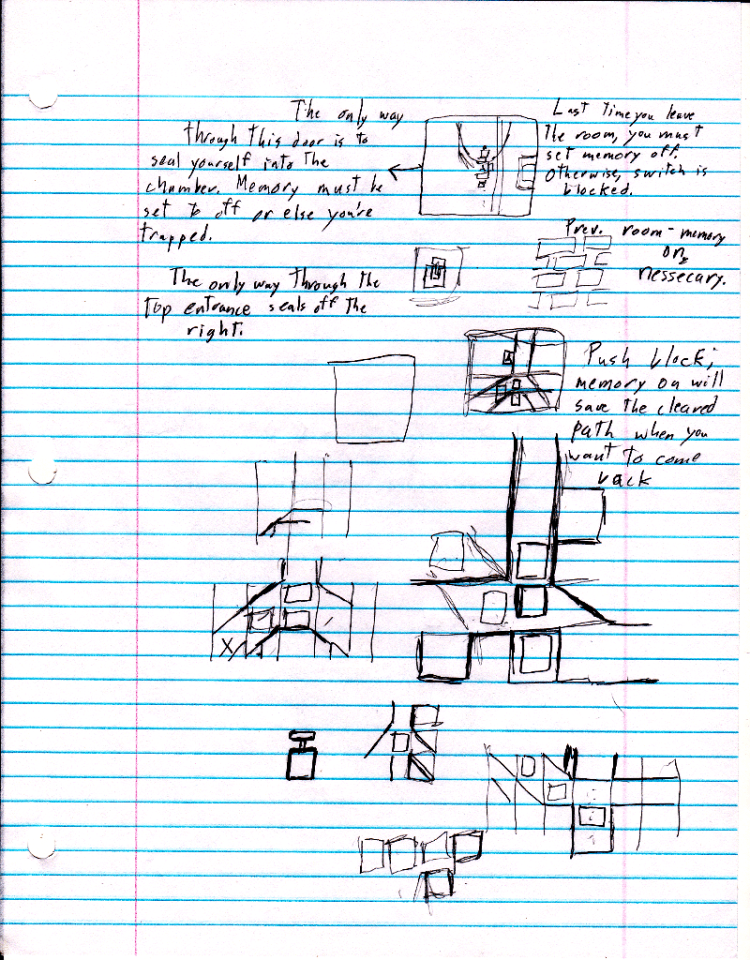 The only way
through this door is to
seal yourself into the
chamber. Memory must be
set to off or else you're
trapped.
Last time you leave
the room, you must
set memory off.
Otherwise, switch is
blocked.
Prev. room - memory
on
nessecary.
The only way through the
top entrance seals off the
right.
Push block;
memory on will
save the cleared
path when you
want to come
back
X